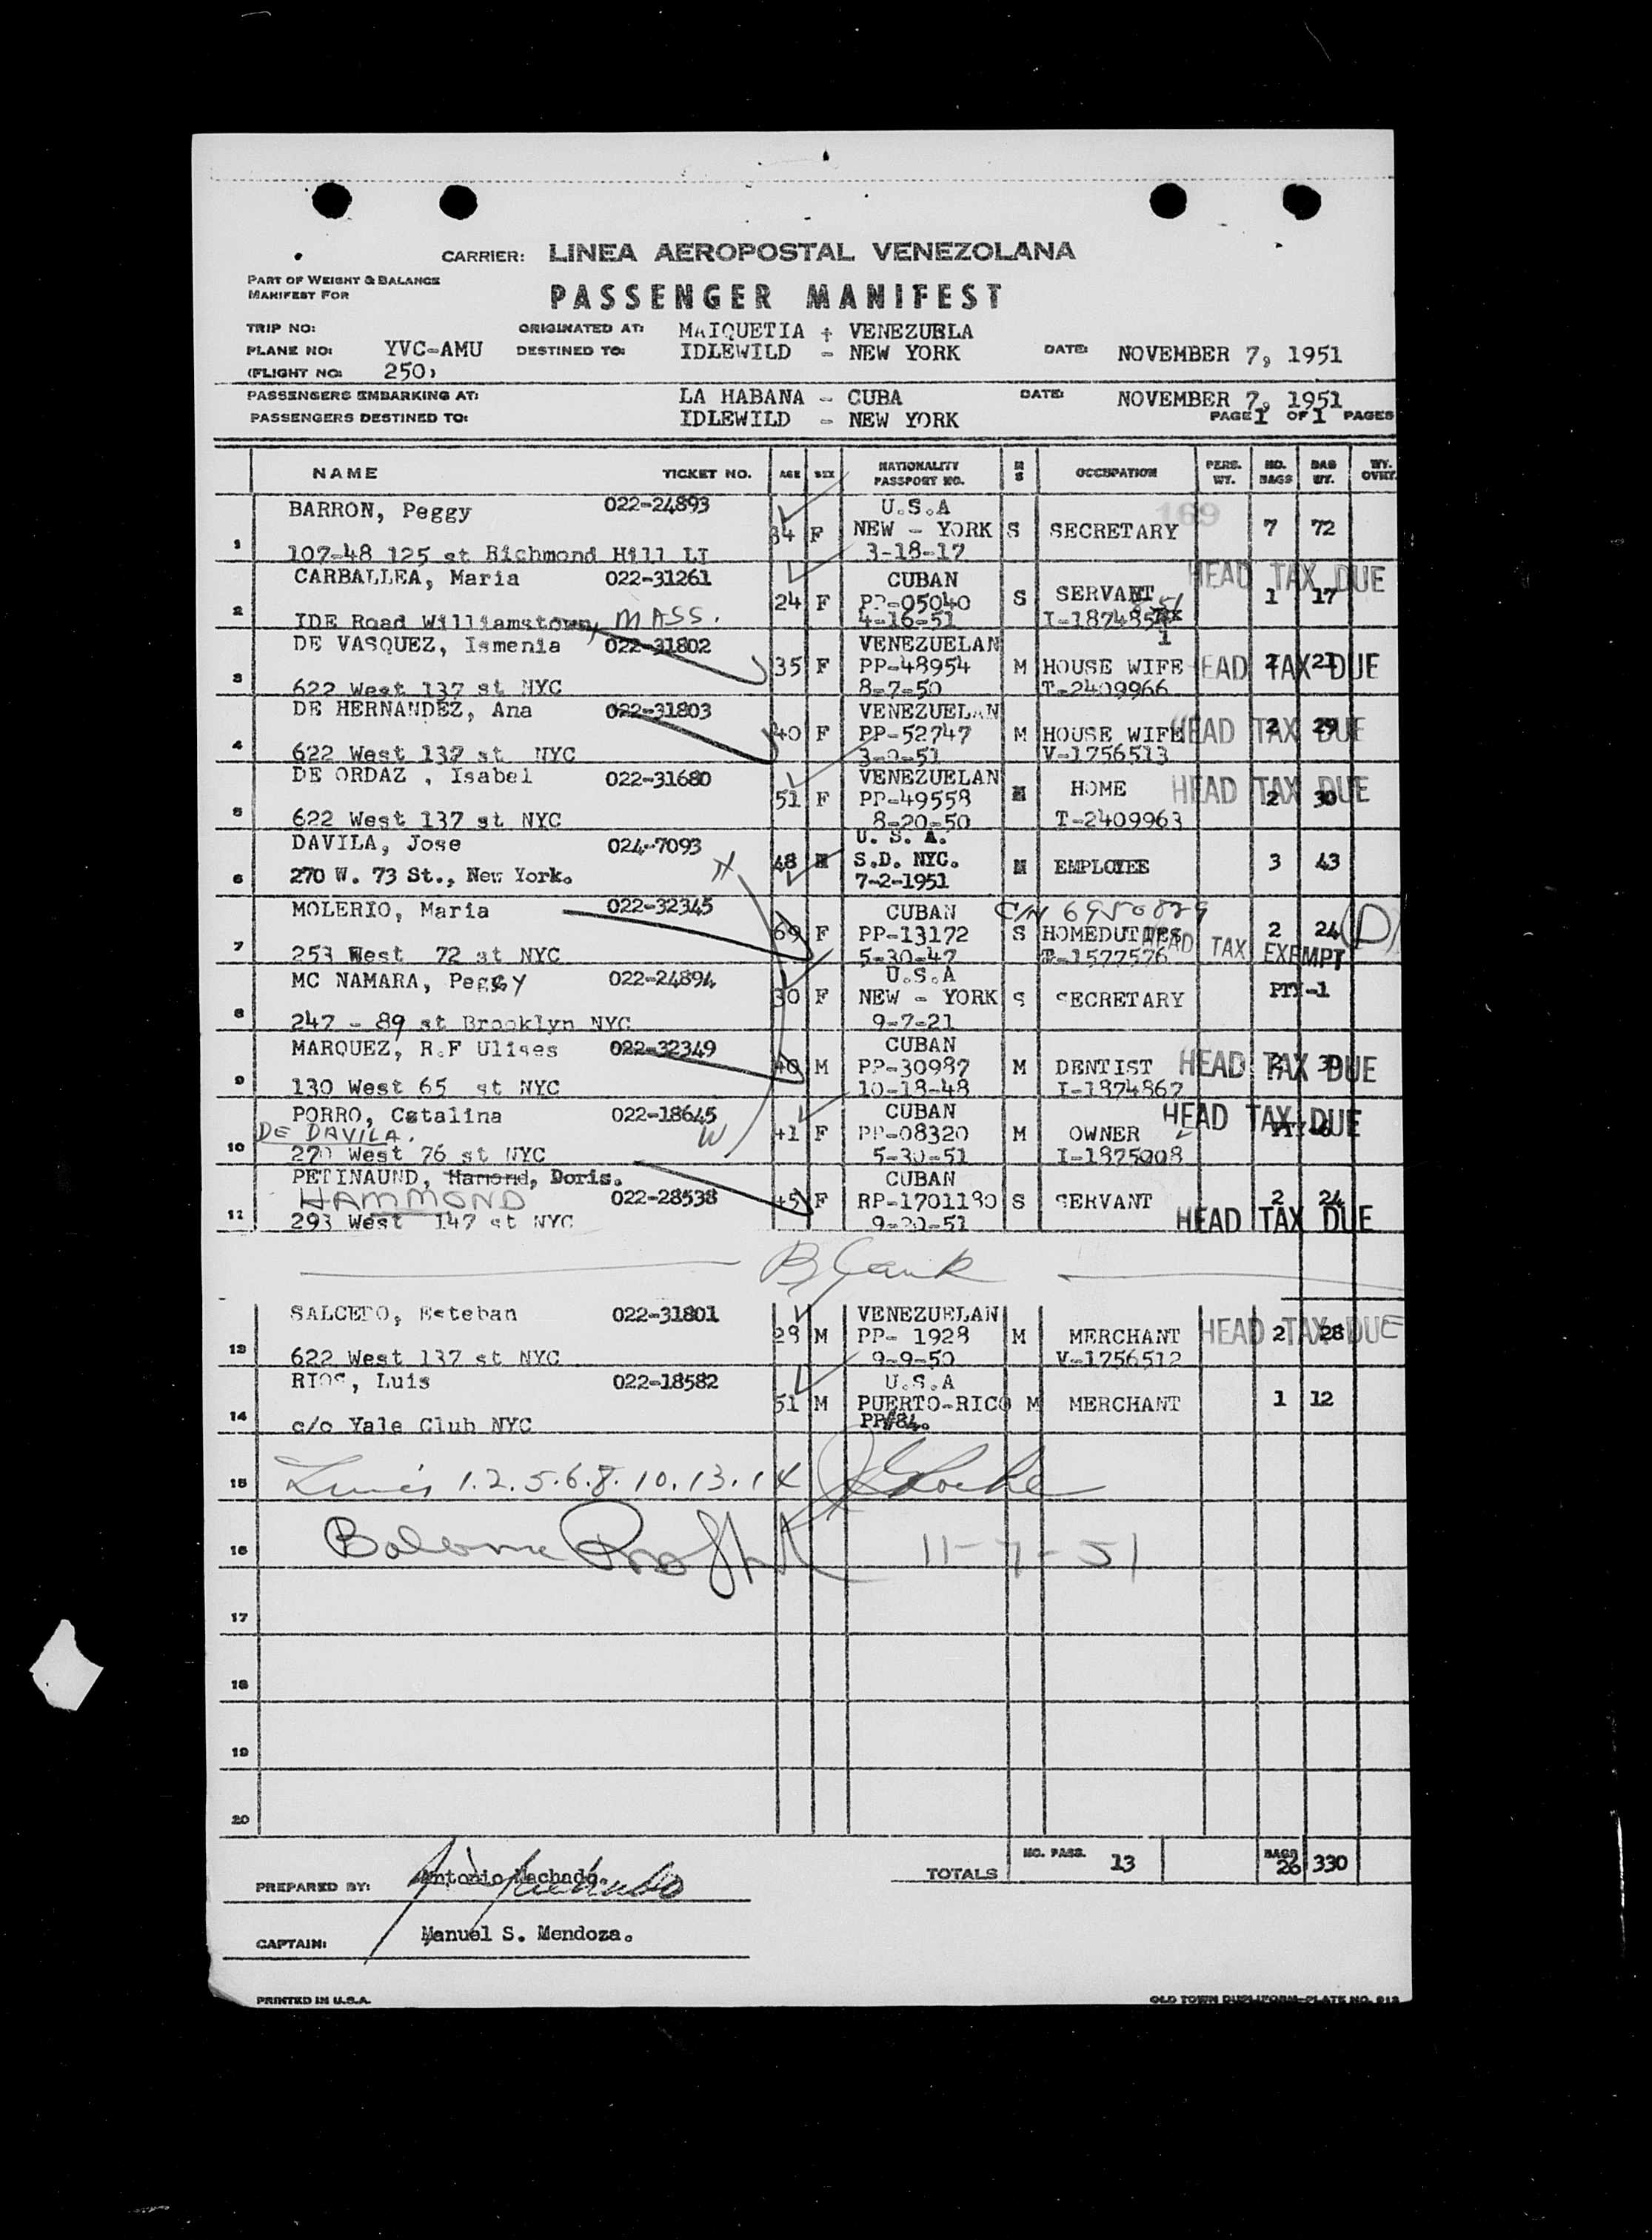 CARRIER: LINEA AEROPOSTAL VENEZOLANA
PART OF WEIGHT & BALANCE
MANIFEST FOR
PASSENGER MANIFEST
TRIP NO: ORIGINATED AT: MAIQUETIA + VENEZUELA
PLANE NO: YVC-AMU DESTINED TO: IDLEWILD - NEW YORK DATE: NOVEMBER 7, 1951
(FLIGHT NO: 250)
PASSENGERS EMBARKING AT: LA HABANA - CUBA DATE: NOVEMBER 7, 1951
PASSENGERS DESTINED TO: IDLEWILD - NEW YORK PAGE 1 OF 1 PAGES
NAME TICKET NO. AGE SEX NATIONALITY PASSPORT NO. M S OCCUPATION PERS. WT. NO. BAGS BAG WT. WT. OVHT.
BARRON, Peggy 022-24893 U.S.A 169
1 34 F NEW - YORK S SECRETARY 7 72
107-48 125 st Richmond Hill LI 3-18-17
CARBALLEA, Maria 022-31261 CUBAN HEAD TAX DUE
2 24 F PP-05040 S SERVANT 1 17
IDE Road Williamstown, MASS. 4-16-51
DE VASQUEZ, Ismenia 022-31802 VENEZUELAN 1
3 35 F PP-48954 M HOUSE WIFE HEAD TAX DUE
622 West 137 st NYC 8-7-50 T-2409966
DE HERNANDEZ, Ana 022-31803 VENEZUELAN
4 40 F PP-52747 M HOUSE WIFE HEAD TAX DUE 2 29
622 West 137 st NYC V-1756513
DE ORDAZ , Isabel 022-31680 VENEZUELAN
5 51 F PP-49558 M HOME HEAD TAX DUE 2 30
622 West 137 st NYC 8-20-50 T-2409963
DAVILA, Jose 024-7093 U. S. A.
6 48 M S.D. NYC. M EMPLOYEE 3 43
270 W. 73 St., New York. 7-2-1951
MOLERIO, Maria 022-32345 CUBAN C/N 6950829
7 69 F PP-13172 S HOMEDUTIES 2 24 (D)
253 West 72 st NYC 5-30-47 T-1577576 HEAD TAX EXEMPT
MC NAMARA, Peggy 022-24894 U.S.A
8 30 F NEW - YORK S SECRETARY PTY-1
247 - 89 st Brooklyn NYC 9-7-21
MARQUEZ, R.F Ulises 022-32349 CUBAN
9 40 M PP-30987 M DENTIST HEAD TAX DUE
130 West 65 st NYC 10-18-48 I-1874867
PORRO, Catalina 022-18645 CUBAN HEAD TAX DUE
DE DAVILA.
10 41 F PP-08320 M OWNER
270 West 76 st NYC 5-30-51 I-1875008
PETINAUND, Hamond, Doris. CUBAN
HAMMOND 022-28538 45 F RP-1701180 S SERVANT 2 24
11 293 West 147 st NYC 9-20-51 HEAD TAX DUE
Blank
SALCEDO, Esteban 022-31801 VENEZUELAN
13 29 M PP- 1928 M MERCHANT HEAD TAX DUE 2 28
622 West 137 st NYC 9-9-50 V-1756512
RIOS, Luis 022-18582 U.S.A
14 51 M PUERTO-RICO M MERCHANT 1 12
c/o Yale Club NYC PP#84.
15 Lines 1.2.5.6.8.10.13.14
16 11-7-51
17
18
19
20
TOTALS NO. PASS. 13 BAGS 26 330
PREPARED BY: Antonio Machado.
CAPTAIN: Manuel S. Mendoza.
PRINTED IN U.S.A. OLD TOWN DUPLIFORM-PLATE NO. 913